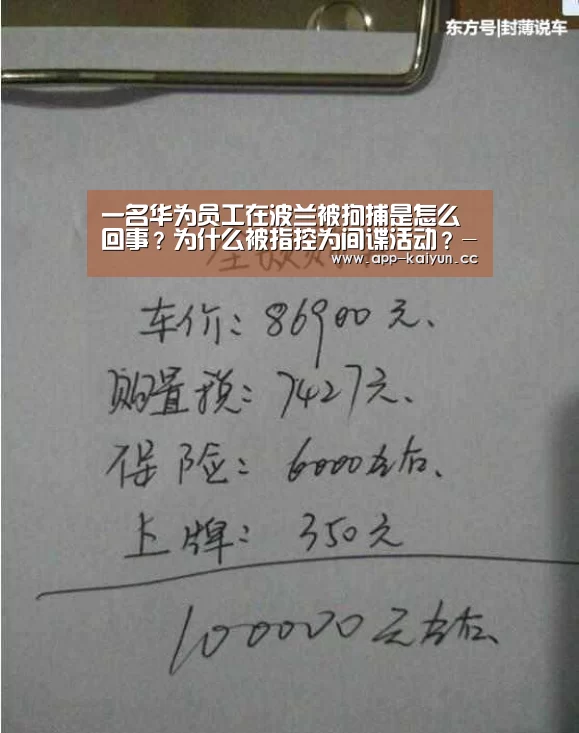 东方号|封薄说车
一名华为员工在波兰被拘捕是怎么
回事？为什么被指控为间谍活动？—
www.app-kaiyun.cc
车价：86900元、
购置税：7427元、
保险：6000左右、
上牌：350元
100000元左右、